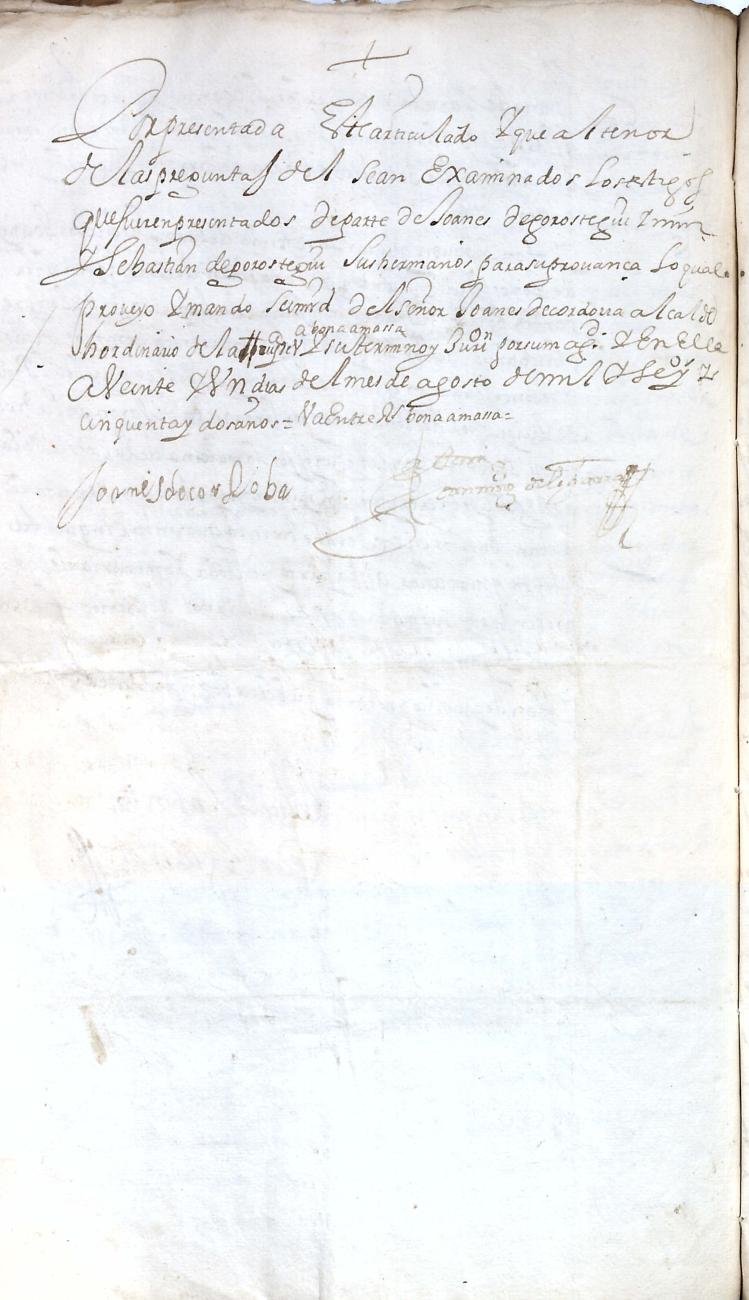 +
Por presentada El articulado Y que al tenor
de las preguntas del sean Examinados Los testigos
que fueren presentados de parte de Joanes de gorostegui Ynin
Y Sebastian de gorostegui Sus hermanos para su provanca Lo qual
proveyo Y mando Su mrd del Señor Joanes de cordova alcalde
abona amassa
hordinario de la V Y su termino y Jurion por su magd Y En Ella
a Veinte Y Un dias del mes de agosto de mil Y Seysos Y
cinquenta y dos años = Va Entre Rs bona amassa =
Joanes de cordoba